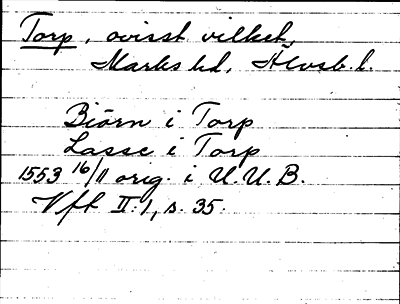 Torp, ovisst vilket,
Marks hd, Älvsb. l.
Biörn i Torp
Lasse i Torp
1553 16/11 orig. i U.U.B.
Vfl II:1, s. 35.